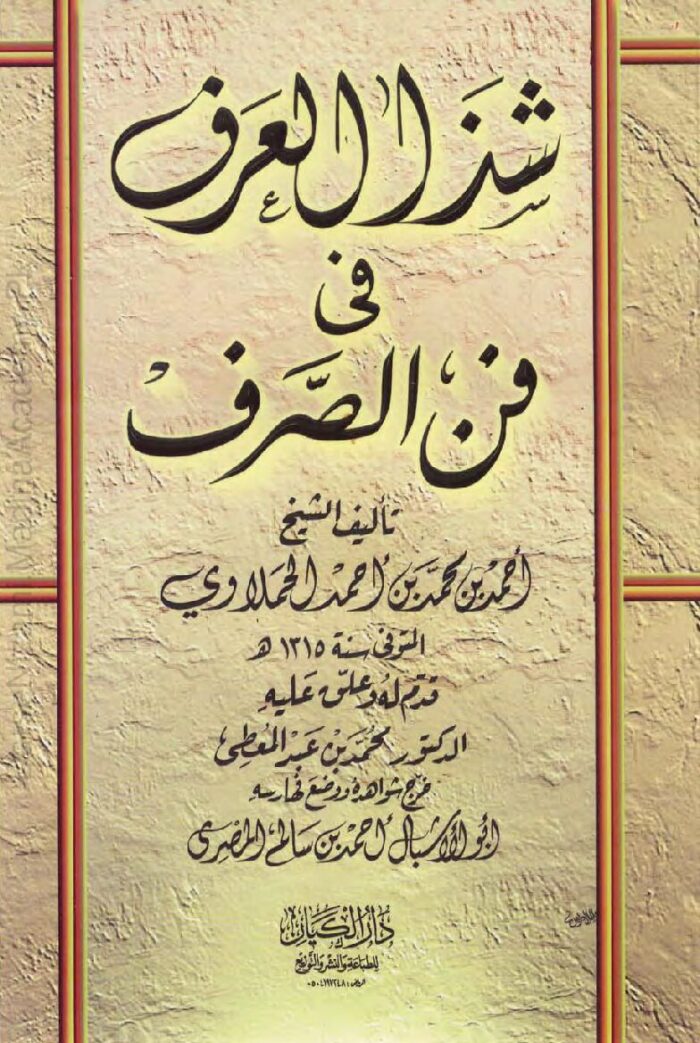 شَذَا العَرف
فى
فن الصَّرف
تأليف الشيخ
أحمد بن محمَّد بن أحمد الحملاوي
المتوفى سنة ١٣١٥ هـ
قدّم له وعلّق عَليهِ
الدكتور محمَّد بن عَبد المُعطى
خرّج شواهدهُ ووضعَ فهارسه
أبو الأشبال أحمد بن سالم المصري
دار الكيان
للطباعة والنشر والتوزيع